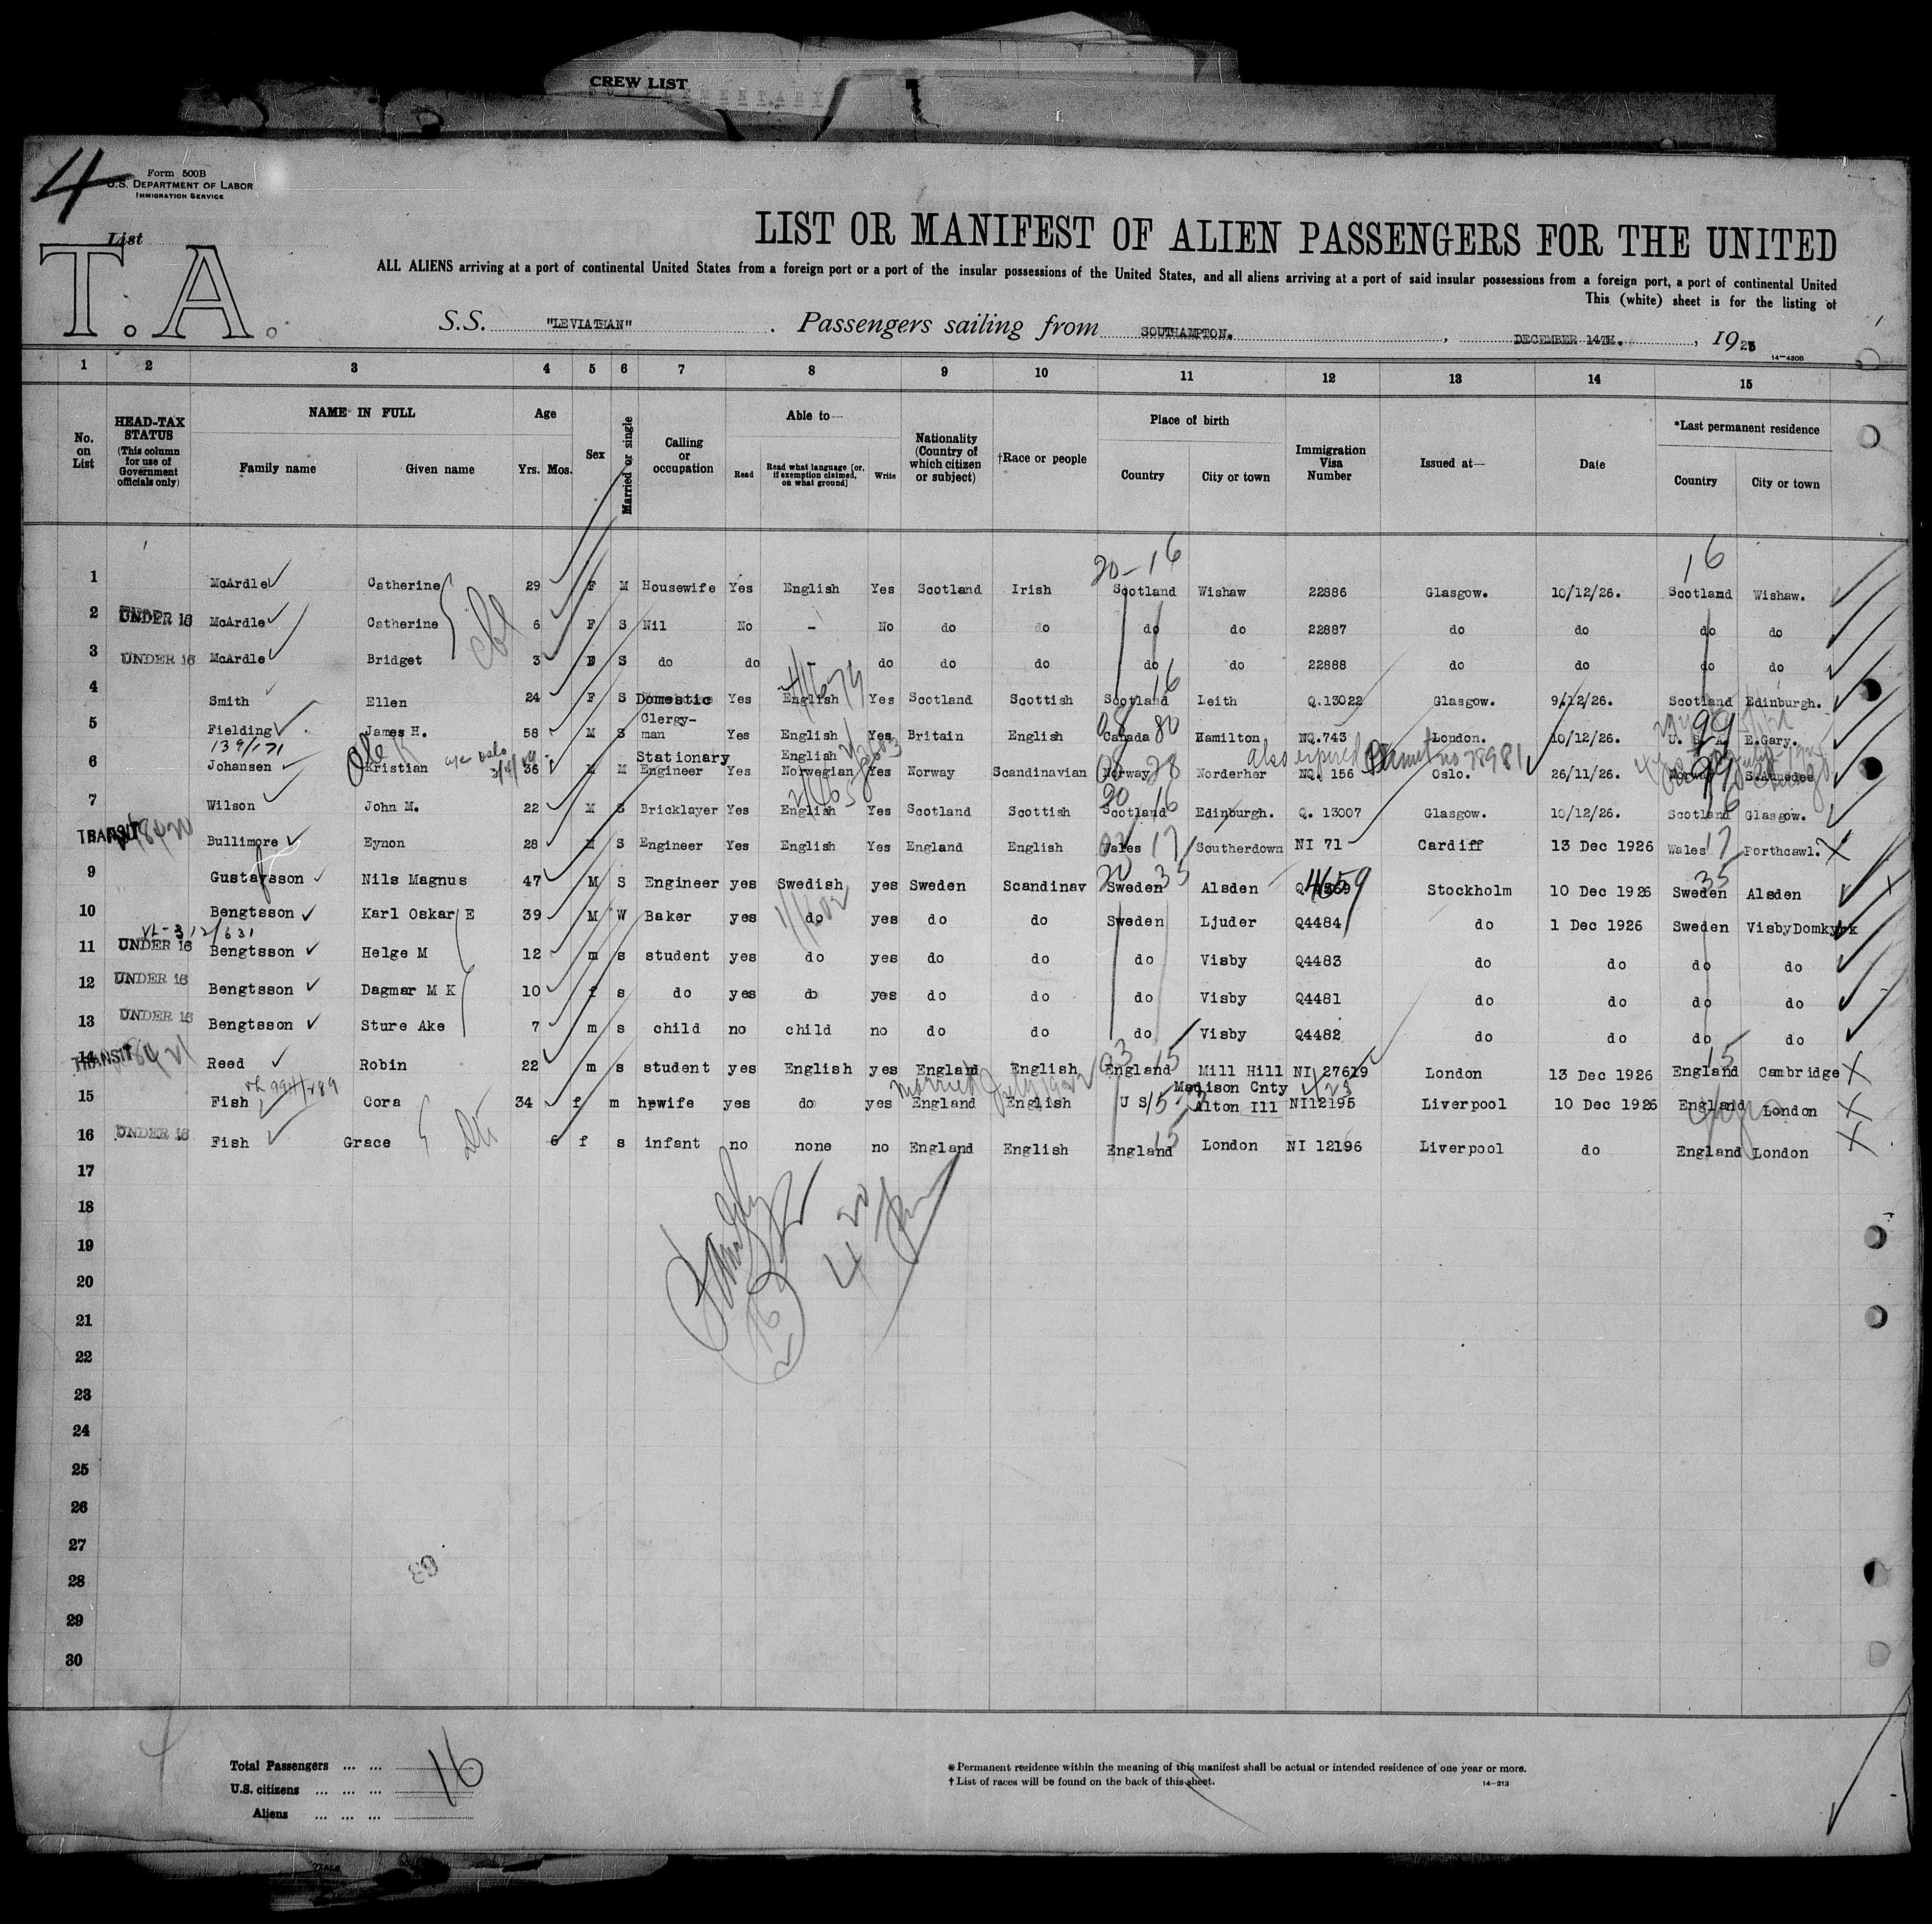 CREW LIST
SUPPLEMENTARY
4
Form 500B
U.S. DEPARTMENT OF LABOR
IMMIGRATION SERVICE
List
T. A.
LIST OR MANIFEST OF ALIEN PASSENGERS FOR THE UNITED
ALL ALIENS arriving at a port of continental United States from a foreign port or a port of the insular possessions of the United States, and all aliens arriving at a port of said insular possessions from a foreign port, a port of continental United
This (white) sheet is for the listing of
S.S. "LEVIATHAN" . Passengers sailing from SOUTHAMPTON. , DECEMBER 14TH. , 19
14-430B
1 2 3 4 5 6 7 8 9 10 11 12 13 14 15
No. on List
HEAD-TAX STATUS (This column for use of Government officials only)
NAME IN FULL
Family name Given name
Age
Yrs. Mos.
Sex
Married or single
Calling or occupation
Able to—
Read Read what language [or, if exemption claimed, on what ground] Write
Nationality (Country of which citizen or subject)
†Race or people
Place of birth
Country City or town
Immigration Visa Number
Issued at—
Date
*Last permanent residence
Country City or town
20-16 16
1 McArdle Catherine 29 F M Housewife Yes English Yes Scotland Irish Scotland Wishaw 22886 Glasgow. 10/12/26. Scotland Wishaw.
2 UNDER 16 McArdle Catherine 6 F S Nil No - No do do do do 22887 do do do do
3 UNDER 16 McArdle Bridget 3 F S do do - do do do do do 22888 do do do do
4 Smith Ellen 24 F S Domestic Yes English Yes Scotland Scottish Scotland 16 Leith Q.13022 Glasgow. 9/12/26. Scotland Edinburgh.
5 Fielding James H. 58 M S Clergy-man Yes English Yes Britain English Canada 80 Hamilton NQ.743 London. 10/12/26. U. S. A. E.Gary.
139/171
also expired Permit no 78981
6 Johansen Ole Kristian 36 M M Stationary Engineer Yes English Norwegian Yes Norway Scandinavian Norway 28 Norderher NQ. 156 Oslo. 26/11/26. Norway
7 Wilson John M. 22 M S Bricklayer Yes English Yes Scotland Scottish Scotland 16 Edinburgh. Q. 13007 Glasgow. 10/12/26. Scotland 16 Glasgow.
8 TRANSIT Bullimore Eynon 28 M S Engineer Yes English Yes England English Wales 17 Southerdown NI 71 Cardiff 13 Dec 1926 Wales 17 Porthcawl.
9 Gustafsson Nils Magnus 47 M S Engineer yes Swedish yes Sweden Scandinav Sweden 35 Alsden Q 4659 Stockholm 10 Dec 1926 Sweden 35 Alsden
10 Bengtsson Karl Oskar E 39 M W Baker yes do yes do do Sweden Ljuder Q4484 do 1 Dec 1926 Sweden VisbyDomkyrk
11 UNDER 16 Bengtsson Helge M 12 m s student yes do yes do do do Visby Q4483 do do do do
12 UNDER 16 Bengtsson Dagmar M K 10 f s do yes do yes do do do Visby Q4481 do do do do
13 UNDER 16 Bengtsson Sture Ake 7 m s child no child no do do do Visby Q4482 do do do do
14 TRANSIT Reed Robin 22 m s student yes English yes England English England 15 Mill Hill NI 27619 London 13 Dec 1926 England 15 Cambridge
married July 1922
15 Fish Cora 34 f m hpwife yes do yes England English U S Madison Cnty Alton Ill NI12195 Liverpool 10 Dec 1926 England London
16 UNDER 16 Fish Grace 6 f s infant no none no England English England 15 London NI 12196 Liverpool do England London
17
18
19
20
21
22
23
24
25
26
27
28
29
30
Total Passengers ... ... 16
U.S. citizens ... ... ...
Aliens ... ... ...
* Permanent residence within the meaning of this manifest shall be actual or intended residence of one year or more.
† List of races will be found on the back of this sheet.
14-213